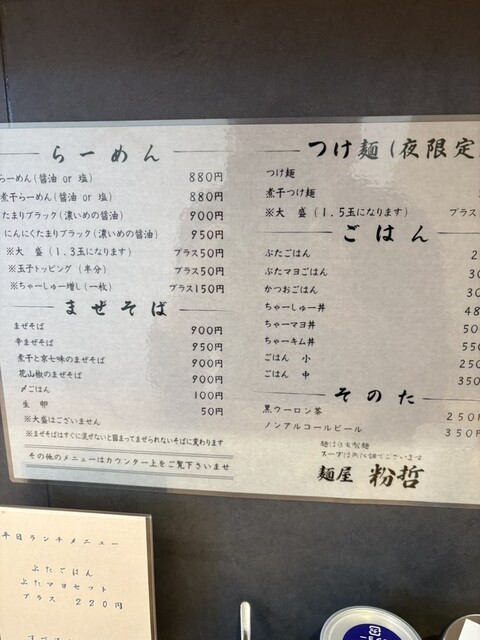 らーめん
らーめん(醤油 or 塩) 880円
煮干らーめん(醤油 or 塩) 880円
たまりブラック(濃いめの醤油) 900円
にんにくたまりブラック(濃いめの醤油) 950円
※大 盛(1.3玉になります) プラス50円
※玉子トッピング(半分) プラス50円
※ちゃーしゅー増し(一枚) プラス150円
まぜそば
まぜそば 900円
辛まぜそば 950円
煮干と京七味のまぜそば 900円
花山椒のまぜそば 900円
〆ごはん 100円
生 卵 50円
※大盛はございません
※まぜそばはすぐに混ぜないと固まってまぜられないそばに変わります
その他のメニューはカウンター上をご覧下さいませ
つけ麺(夜限定
つけ麺
煮干つけ麺
※大 盛(1.5玉になります) プラス
ごはん
ぶたごはん
ぶたマヨごはん
かつおごはん
ちゃーしゅー丼
ちゃーマヨ丼
ちゃーキム丼 550
ごはん 小 250
ごはん 中 350
そのた
黒ウーロン茶 250円
ノンアルコールビール 350円
麺は自家製麺
スープは無化調でございます
麺屋 粉哲
平日ランチメニュー
ぶたごはん
ぶたマヨセット
プラス 220円